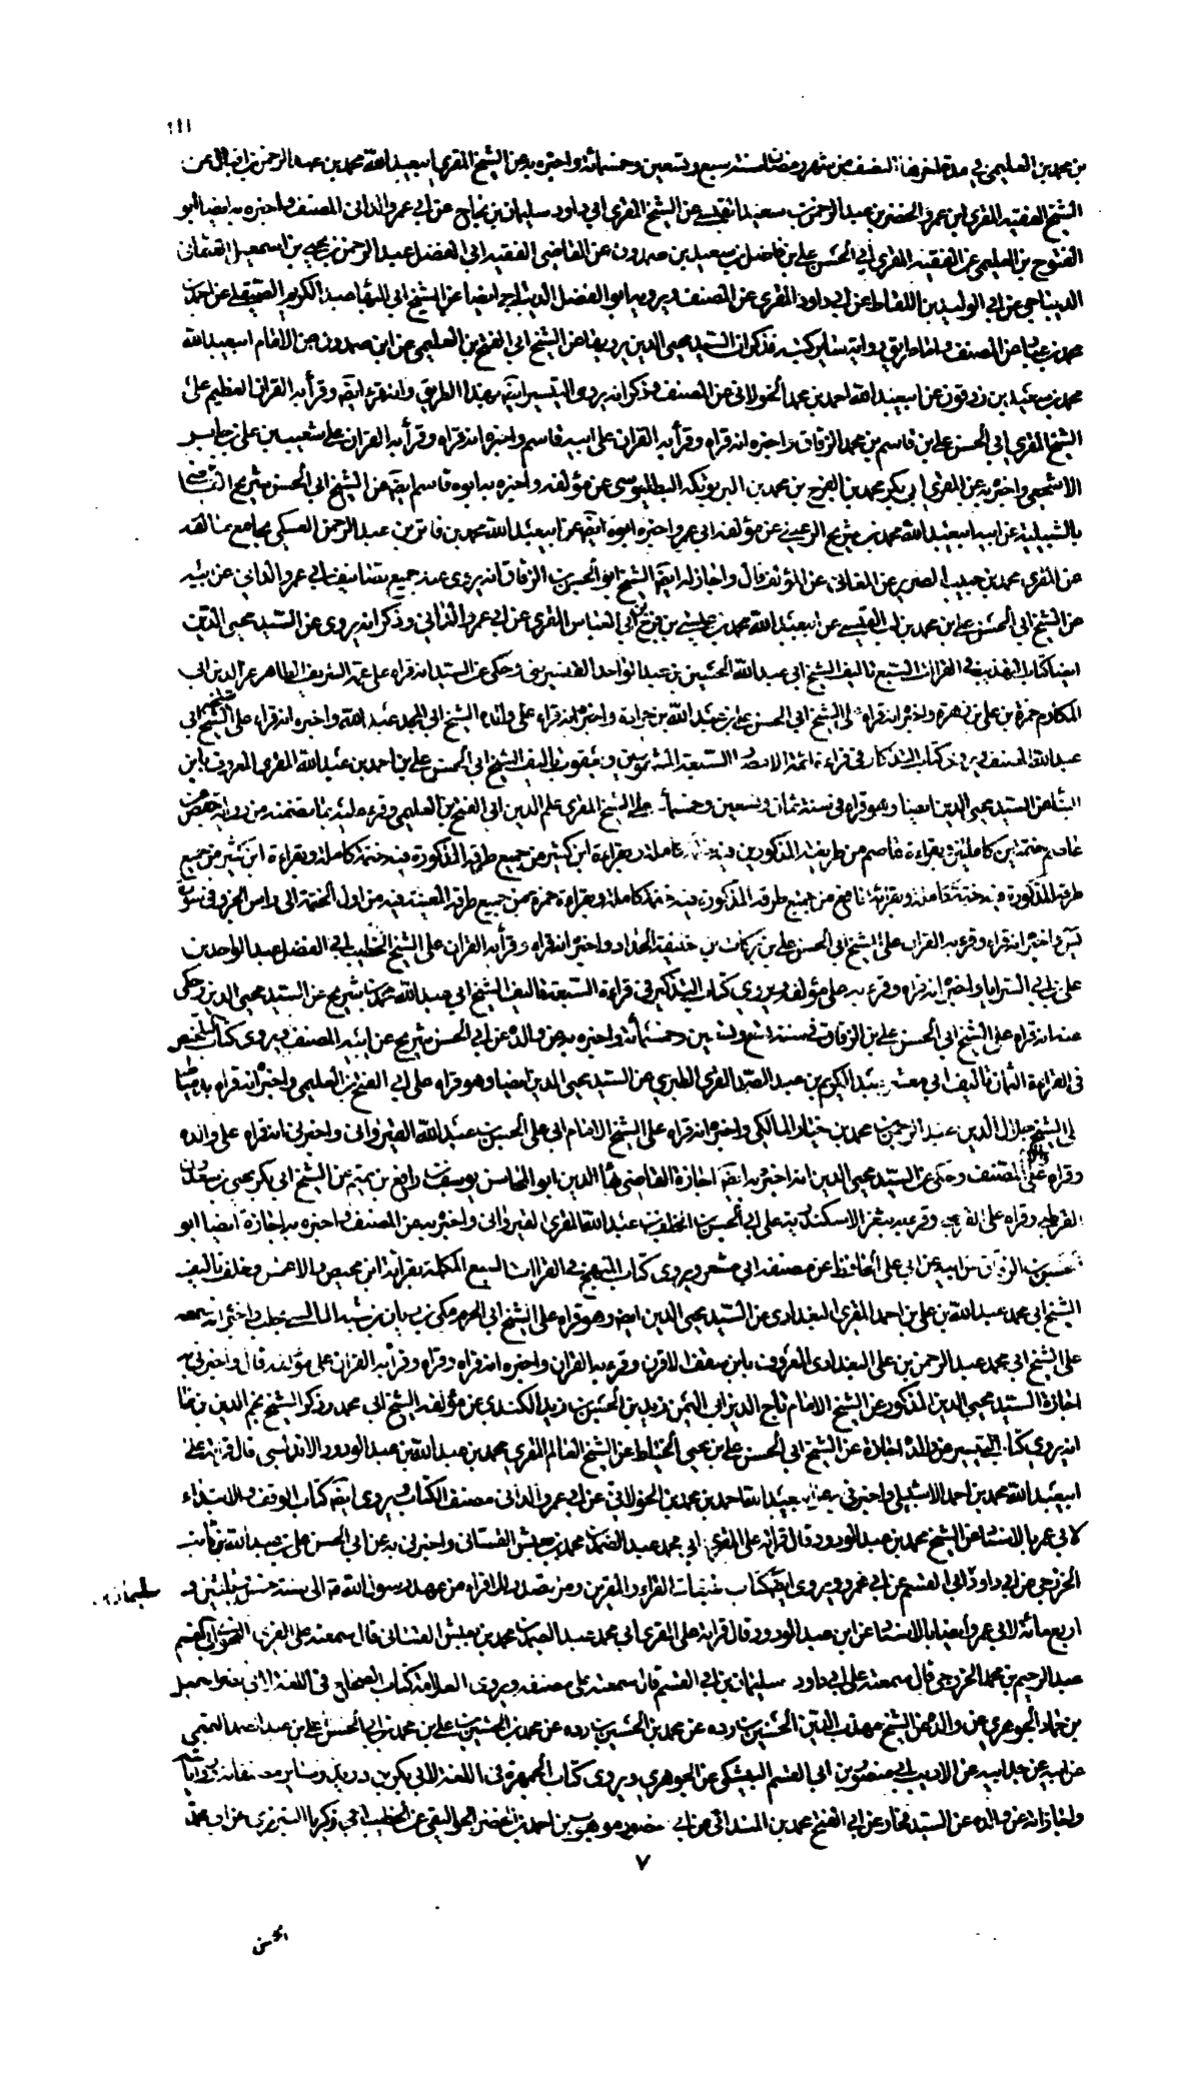 بن محمد بن العليمي في مدة اخرها النصف من شهر رمضان سنة سبع وتسعين وخمسمائة واخبره به عن الشيخ المقري ابي عبد الله محمد بن عبد الرحمن بن اقبال عن
الشيخ الفقيه المقري ابن عمرو الخضر بن عبد الرحمن بن سعيد القيسي عن الشيخ المقري ابي داود سليمان بن نجاح عن ابي عمرو الداني المصنف واخبره به ايضا ابو
الفتوح بن العليمي عن الفقيه المقري ابي الحسن علي بن فاضل بن سعيد بن صمدون عن القاضي الفقيه ابي الفضل عبد الرحمن بن يحيى بن اسمعيل العثماني
الديباجي عن ابي الوليد بن اللقاط عن ابي داود المقري عن المصنف ويرويه ابو الفضل الديباجي ايضا عن الشيخ ابي البها عبد الكريم الصقيلي عن احمد بن
محمد عن المصنف واما طريق رواية ساير كتبه فذكر ان السيد محيى الدين يرويها عن الشيخ ابي الفتح بن العليمي عن ابن صمدون عن الامام ابي عبد الله
محمد بن سعيد بن زرقون عن ابي عبد الله احمد بن محمد الخولاني عن المصنف وذكر انه يروى التيسير ايضا بهذا الطريق وانه قراه ايضا وقرأ به القران العظيم على
الشيخ المقري ابي الحسن علي بن قاسم بن محمد الزقاق واخبره انه قراه وقرأ به القران على ابيه قاسم واخبره انه قراه وقرأ به القران على شعيب بن علي بن جابر
الاشجعي واخبره به عن المقري ابي بكر محمد بن المفرج بن محمد بن البربونكه البطليوسى عن مؤلفه واخبره به ابوه قاسم ايضا عن الشيخ ابي الحسن شريح القاضي
باشبيلية عن ابيه ابي عبد الله محمد بن شريح الرعيني عن مؤلفه ابي عمرو واخبره ابوه ايضا عن ابي عبد الله محمد بن فاتن بن عبد الرحمن العسكي بجامع مالقه
عن المقري محمد بن حبيب الضرير عن المغامى عن المؤلف قال واجاز له ايضا الشيخ ابو الحسن بن الزقاق انه يروى عنه جميع تصانيف ابي عمرو الداني عن ابيه
عن الشيخ ابي الحسن علي بن محمد بن لب القيسي عن ابي عبد الله محمد بن عيسى بن فرج بن ابي العباس المقري عن ابي عمرو الداني وذكر انه يروى عن السيد محيى الدين
ايضا كتاب التهذيب في القراات السبع تاليف الشيخ ابي عبد الله الحسين بن عبد الواحد القنسريني وحكى عن السيد انه قراه على عمه الشريف الطاهر عز الدين ابي
المكارم حمزة بن علي بن زهرة واخبره انه قراه على الشيخ ابي الحسن علي بن عبد الله بن جرادة واخبره انه قراه على والده الشيخ ابي المجد عبد الله واخبره انه قراه على الشيخ ابي
عبد الله المصنف ويروى كتاب التذكار في قراءة ائمة الامصار السبعة المشهورين ويعقوب تاليف الشيخ ابي الحسن علي بن احمد بن عبد الله المقري المعروف بابن
عن السيد محيى الدين ايضا وهو قراه في سنة ثمان وتسعين وخمسمأة على الشيخ المقري علم الدين ابي الفتح بن العليمي وقرء عليه بما تضمنه من رواية حفص عن
عاصم ختمتين كاملتين وبقراءة عاصم من طريقيه المذكورين فيه ختمة كاملة وبقراءة ابن كثير من جميع طرقه المذكورة فيه ختمة كاملة وبقراءة ابن كثير من جميع
طرقه المذكورة فيه ختمة كاملة وبقراءة نافع من جميع طرقه المذكورة فيه ختمة كاملة وبقراءة حمزة من جميع طرقه المعينة فيه من اول الختمة الى راس الحزب في سورة
يس واخبره انه قراه وقرء به القران على الشيخ ابي الحسن علي بن بركات بن خليفة الحداد واخبره انه قراه وقرأ به القران على الشيخ الخطيب ابي الفضل عبد الواحد بن
علي بن ابي السرايا واخبره انه قراه وقرء به على مؤلفه ويروى كتاب التذكير في قراءة السبعة تاليف الشيخ ابي عبد الله محمد بن شريح عن السيد محيى الدين وحكى
عنه انه قراه على الشيخ ابي الحسن علي بن الزقاق في سنة وخمسمأة واخبره به عن والده عن ابي الحسن شريح عن ابيه المصنف ويروى كتاب التلخيص
في القراءة الثمان تاليف ابي معشر عبد الكريم بن عبد الصمد المقري الطبري عن السيد محيى الدين ايضا وهو قراه على ابي الفتح بن العليمي واخبره انه قراه بدمياط
على الشيخ جلال الدين عبد الرحمن بن محمد بن خيار المالكي واخبره انه قراه على الشيخ الامام ابي على الحسين بن عبد الله القيرواني واخبرني انه قراه على والده
وقراه والده على المصنف وحكى عن السيد محيى الدين انه اخبره به ايضا اجازة القاضي بهاء الدين ابو المحاسن يوسف بن رافع بن تميم عن الشيخ ابي بكر يحيى بن سعدون
القرطبي وقراه على القرطبي وقرء به بثغر الاسكندرية على ابي الحسن بن الخلف بن عبد الله المقري القيرواني واخبره به عن المصنف واخبره به اجازة ايضا ابو
الحسن بن الزقاق عن ابيه عن ابي على الحافظ عن مصنفه ابي معشر ويروى كتاب المبهج في القراات السبع المكملة بقراءة ابن محيصن والاعمش وخلف تاليف
الشيخ ابي محمد عبد الله بن علي بن احمد المقري البغدادي عن السيد محيى الدين ايضا وهو قراه على الشيخ ابي الحرم مكى بن ريان بن شبه بحلب واخبره انه سمعه
على الشيخ ابي محمد عبد الرحمن بن علي البغدادي المعروف بابن وقرء به القران واخبره انه قراه وقراه وقرأ به القران على مؤلفه قال واخبرني به
اجازة السيد محيى الدين المذكور عن الشيخ الامام تاج الدين ابي اليمن زيد بن الحسن بن زيد الكندي عن مؤلفه الشيخ ابي محمد وذكر الشيخ نجم الدين بن نما
انه يروى كتاب التيسير عن والده اجازة عن الشيخ ابي الحسن علي بن يحيى الخياط عن الشيخ العالم المقري محمد بن عبد الله بن عبد الودود الاندلسي قال قراته على
ابي عبد الله محمد بن احمد الاشبيلي واخبرني به عن ابي عبد الله احمد بن محمد بن الخولاني عن ابي عمرو الداني مصنف الكتاب ويروى ايضا كتاب الوقف والابتداء
لابي عمرو بالاسناد عن الشيخ محمد بن عبد الودود قال قراته على المقري ابي محمد عبد الصمد بن محمد بن يعيش الغساني واخبرني به عن ابي الحسن علي بن عبد الله بن ثابت
الخزرجي عن ابي داود ابي القسم عن ابي عمرو ويروى ايضا كتاب طبقات القراء والمقرين ومن تصدر للاقراء من عهد رسول الله ص الى سنة خمس وثلثين و سليمان
اربع مائة لابي عمرو ايضا بالاسناد عن ابن عبد الودود قال قراته على المقري ابي محمد عبد الصمد بن محمد بن يعيش الغساني قال سمعته على المقري ابي القسم
عبد الرحيم بن محمد الخزرجي قال سمعته على ابي داود سليمان بن ابي القسم قال سمعته على مصنفه ويروى العلامة كتاب الصحاح في اللغة لابي نصر اسمعيل
بن حماد الجوهري عن والده عن الشيخ مهذب الدين الحسين بن رده عن محمد بن الحسين بن رده عن محمد بن الحسين بن علي بن محمد بن ابي الحسن علي بن عبد الصمد التميمي
عن ابيه عن جد ابيه عن الاديب ابي منصور بن ابي القسم البيشكي عن الجوهري ويروى كتاب الجمهرة في اللغة لابي بكر بن دريد وساير مصنفاته ورواياته
واجازاته عن والده عن السيد فخار عن ابي الفتح محمد بن المنداني عن ابي منصور موهوب بن احمد بن الخضر الجواليقي عن الخطيب ابي زكريا التبريزي عن ابي محمد
٧
الحسن